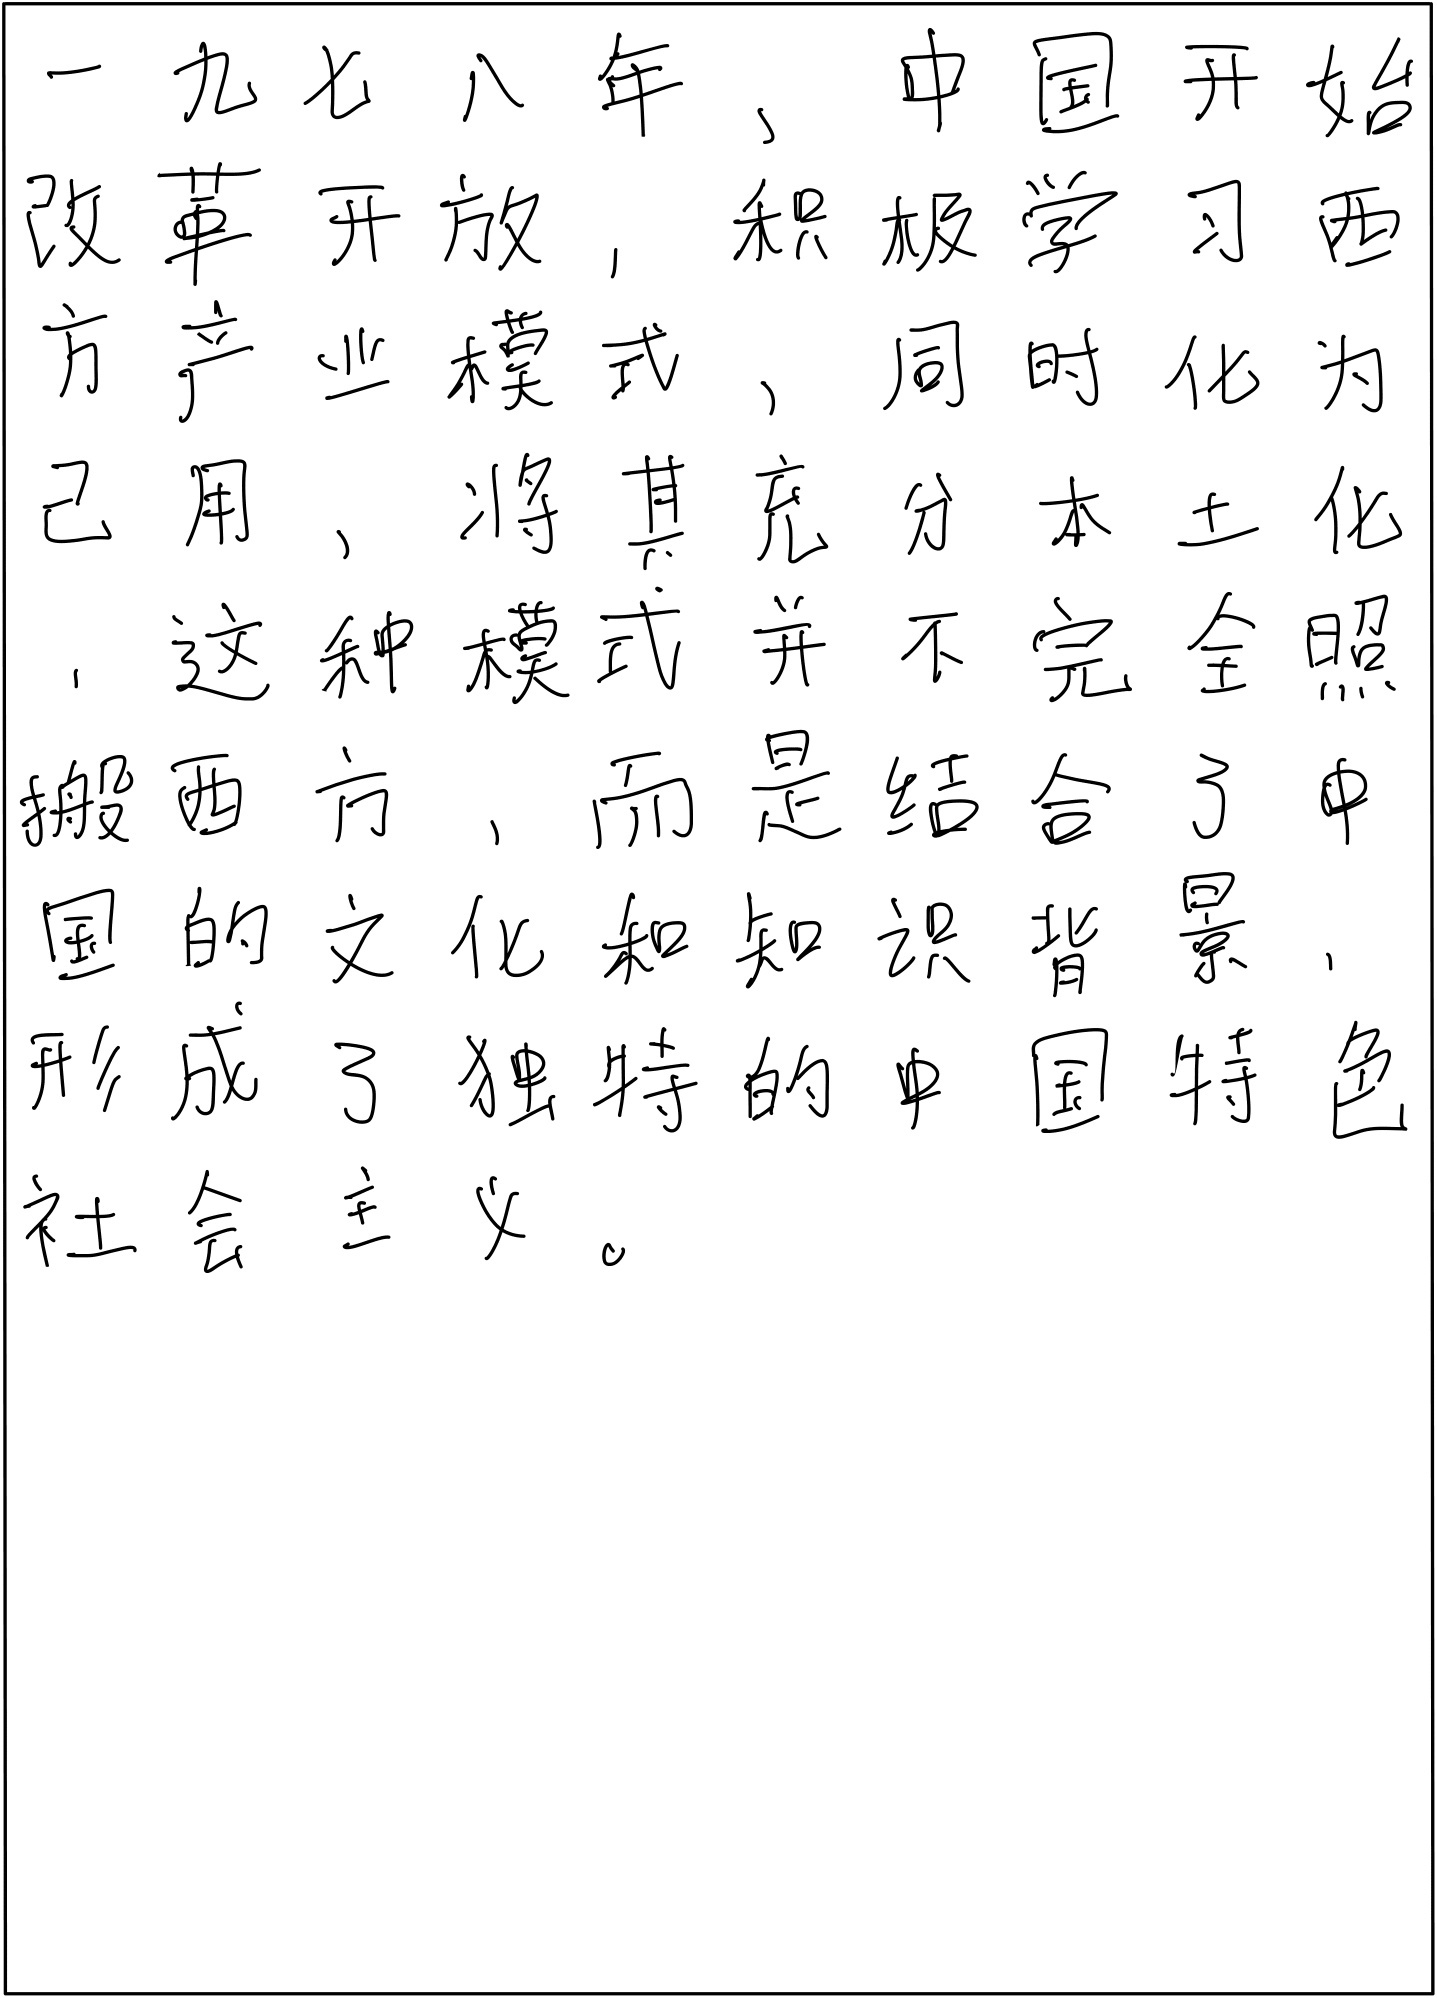 一九七八年、中国开始
改革开放,积极学习西
方产业模式、同时化为
己用、将其充分本土化
.这种模式并不完全照
搬西方、而是结合了中
国的文化和知识背景,
形成了独特的中国特色
社会主义。